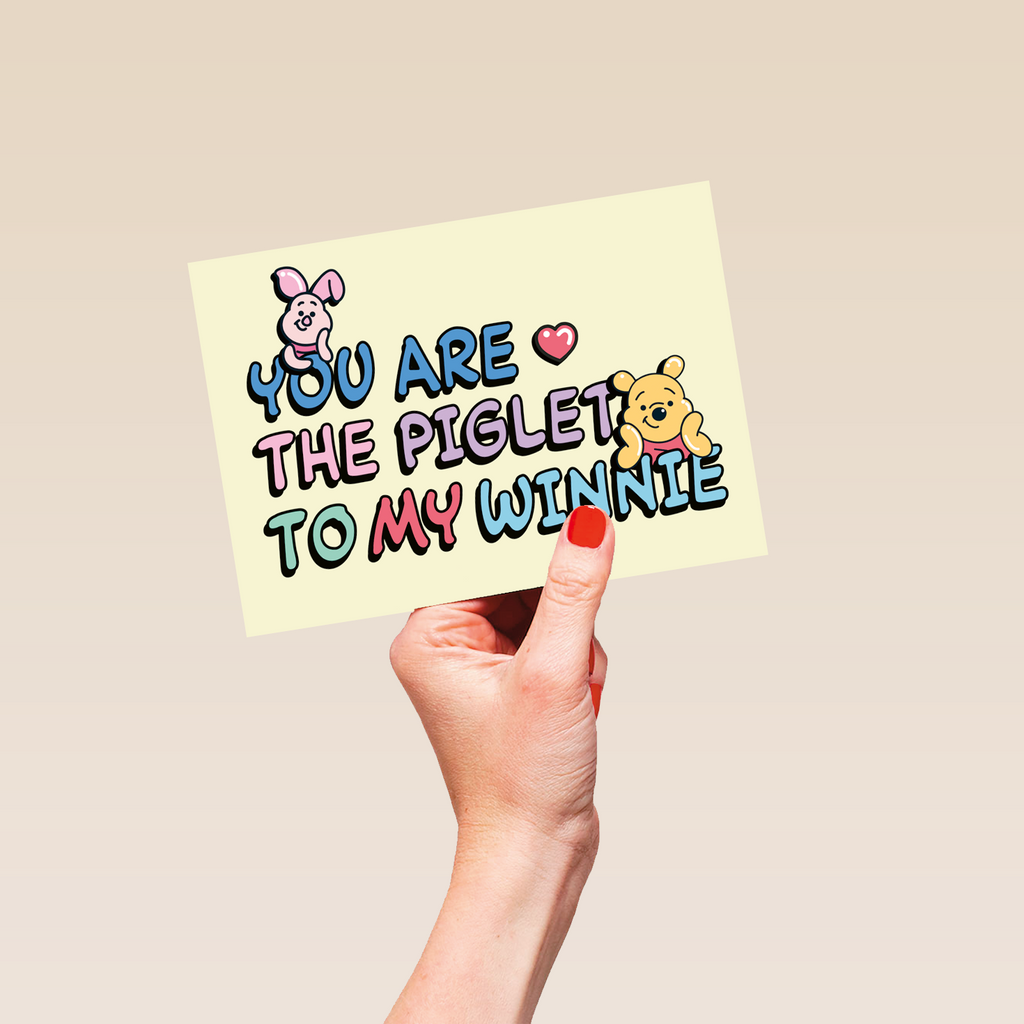 YOU ARE
THE PIGLET
TO MY WINNIE